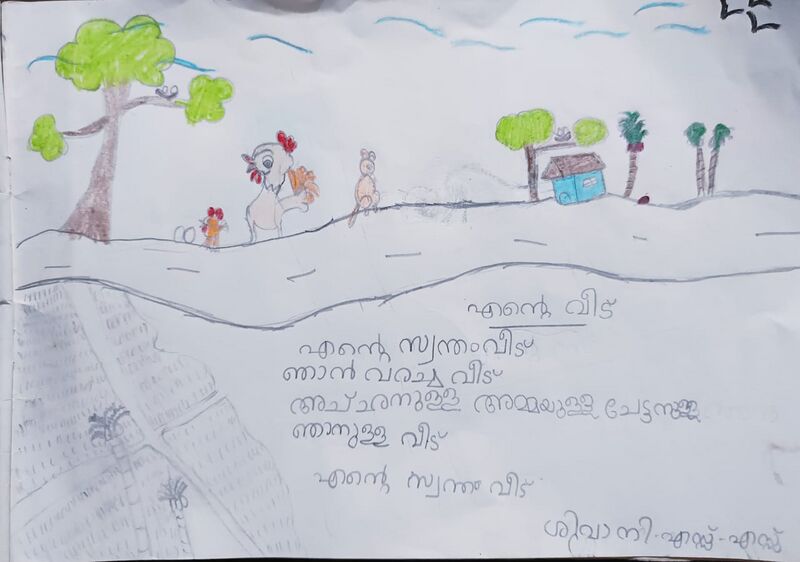 എന്റെ വീട്
എന്റെ സ്വന്തം വീട്
ഞാൻ വരച്ച വീട്
അച്ഛനുള്ള അമ്മയുള്ള ചേട്ടനുള്ള
ഞാനുള്ള വീട്
എന്റെ സ്വന്തം വീട്
ശിവാനി-എസ്സ്-എസ്സ്